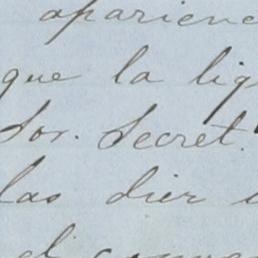 aparienc
que la lig
Sor. Secret.
las dier
el conve